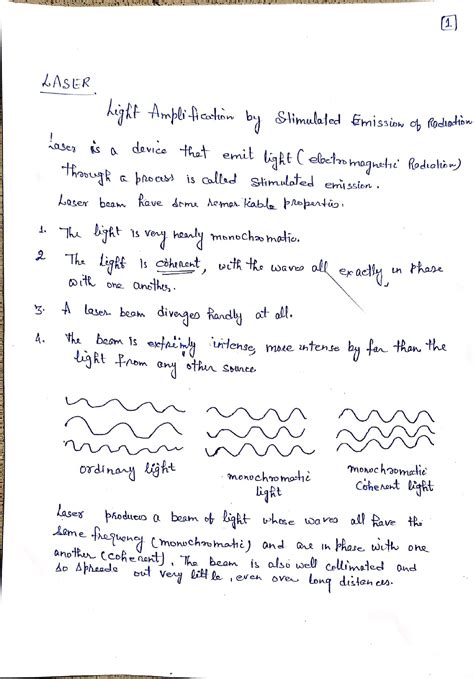 1
LASER
Light Amplification by Stimulated Emission of Radiation
Laser is a device that emit light (electromagnetic Radiation)
through a process is called stimulated emission.
Laser beam have some remarkable properties.
1. The light is very nearly monochromatic.
2 The light is coherent, with the waves all exactly, in phase
with one another.
3. A laser beam diverges hardly at all.
4. The beam is intense, more intense by far than the
light from any other source
ordinary light
monochromatic
light
monochromatic
Coherent light
Laser produces a beam of light whose waves all have the
same frequency (monochromatic) and are in phase with one
another (coherent). The beam is also well collimated and
so spreads out very little, even over long distances.